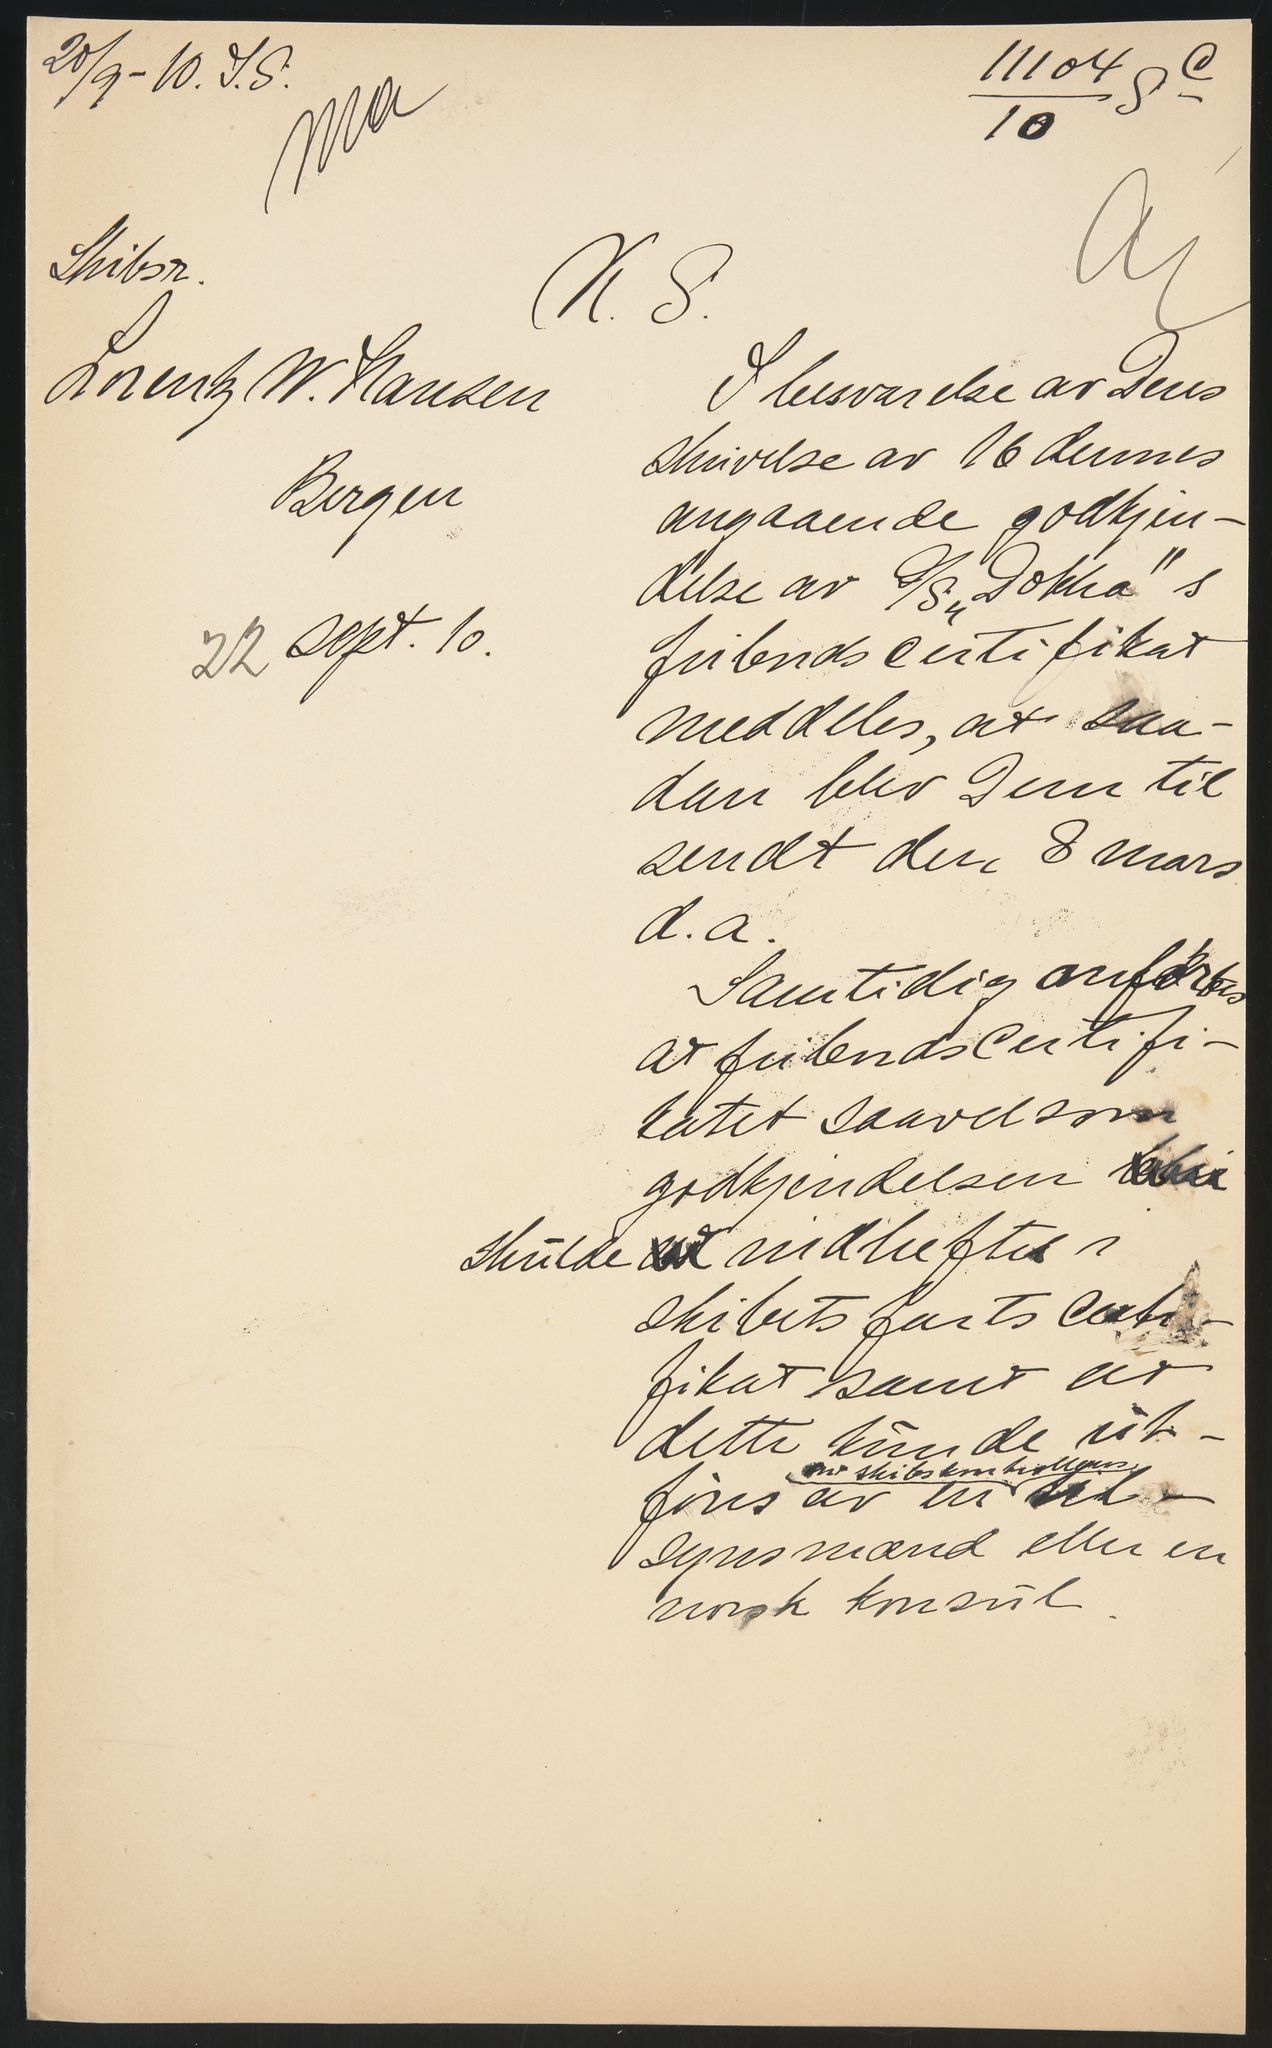 20/9-10. I.S.
11104 S C
10
Skibsr.
K. S.
Lorentz W. Hansen
Bergen
22 sept. 10.
I besvarelse av Deres
skrivelse av 16 dennes
angaaende godkjen-
delse av D/S „Dokka" s
fribordscertifikat
meddeles, at saa-
dan blev Dem til
sendt den 8 mars
d. a.
Samtidig anførtes
at fribordscertifi-
katet saavelsom
godkjendelsen
skulde indheftes i
skibets fartscerti-
fikat samt at
dette kunde ut-
av skibskontrollens
føres av en til-
synsmænd eller en
norsk konsul.